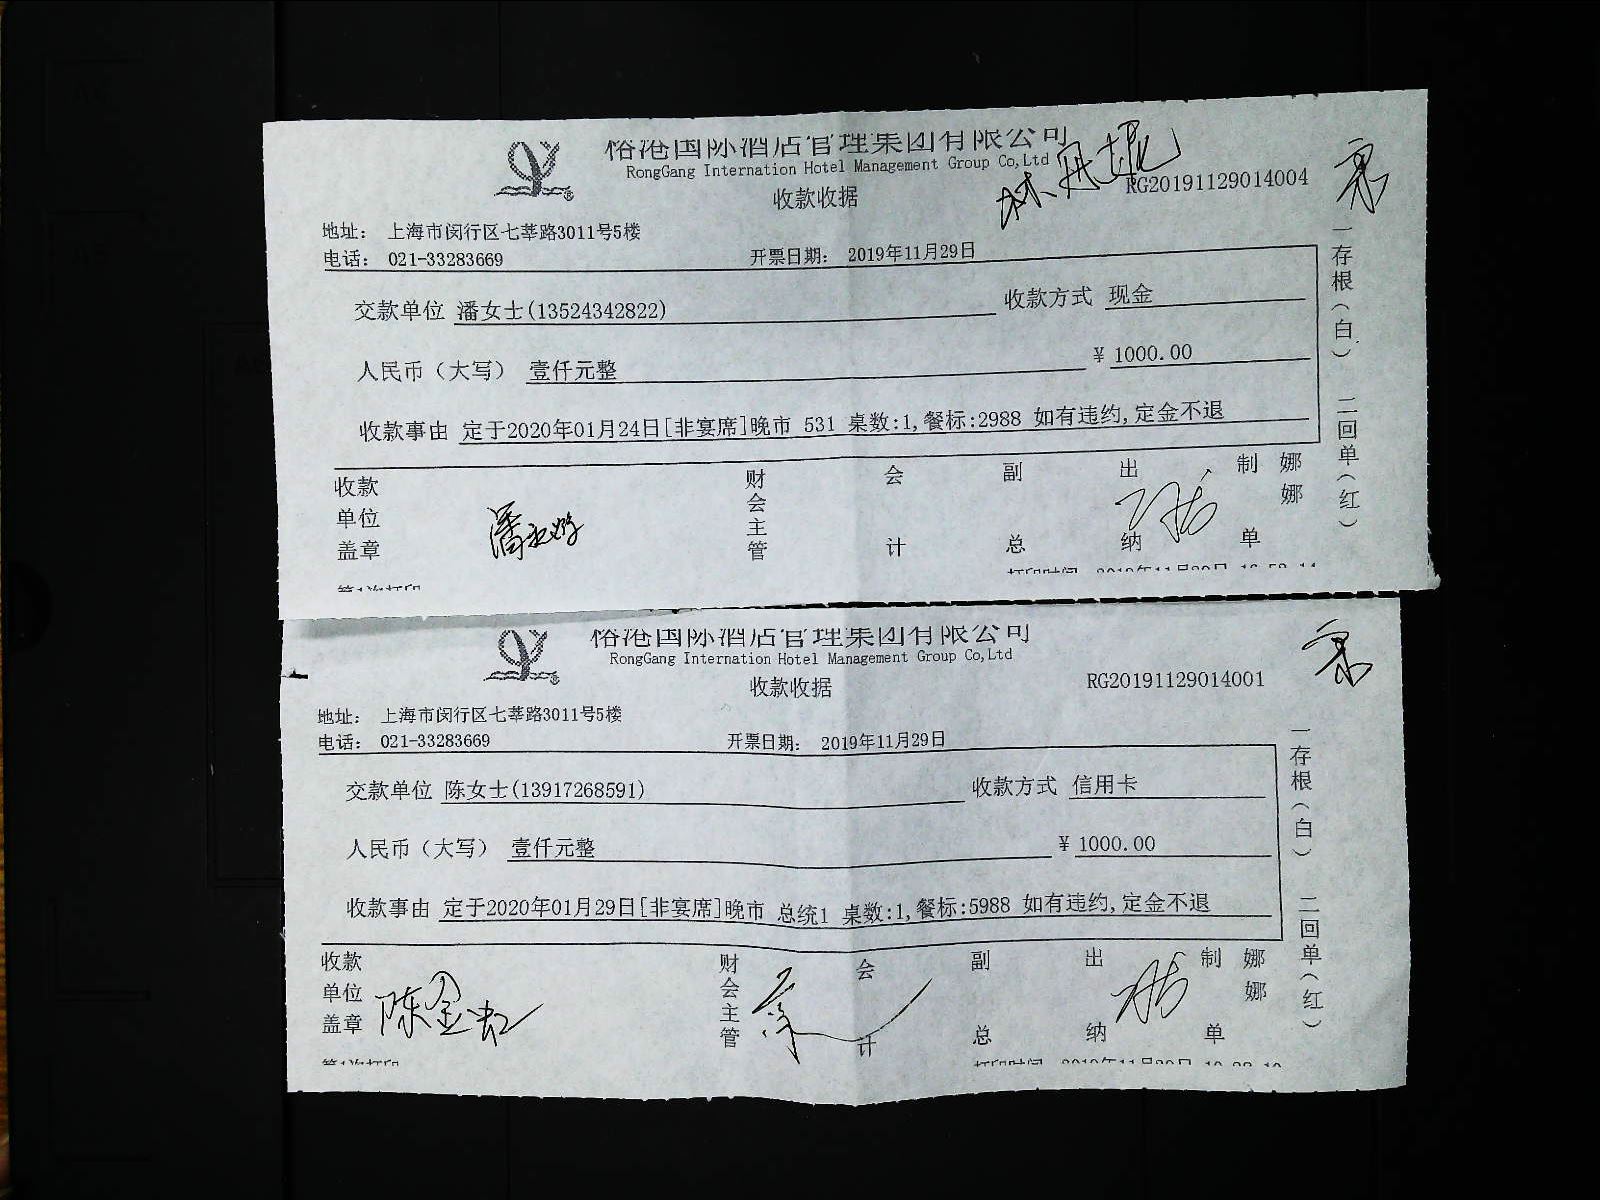 裕港国际酒店管理集团有限公司
RongGang Internation Hotel Management Group Co,Ltd
收款收据
RG20191129014004
地址： 上海市闵行区七莘路3011号5楼
电话： 021-33283669
开票日期： 2019年11月29日
交款单位 潘女士(13524342822)
收款方式 现金
人民币（大写） 壹仟元整
￥ 1000.00
收款事由 定于2020年01月24日[非宴席]晚市 531 桌数:1,餐标:2988 如有违约,定金不退
收款单位盖章
财会主管
会计
副总
出纳
制单
娜娜
一存根（白） 二回单（红）
第1次打印
裕港国际酒店管理集团有限公司
RongGang Internation Hotel Management Group Co,Ltd
收款收据
RG20191129014001
地址： 上海市闵行区七莘路3011号5楼
电话： 021-33283669
开票日期： 2019年11月29日
交款单位 陈女士(13917268591)
收款方式 信用卡
人民币（大写） 壹仟元整
￥ 1000.00
收款事由 定于2020年01月29日[非宴席]晚市 总统1 桌数:1,餐标:5988 如有违约,定金不退
收款单位盖章
陈金
财会主管
会计
副总
出纳
制单
娜娜
一存根（白） 二回单（红）
第1次打印